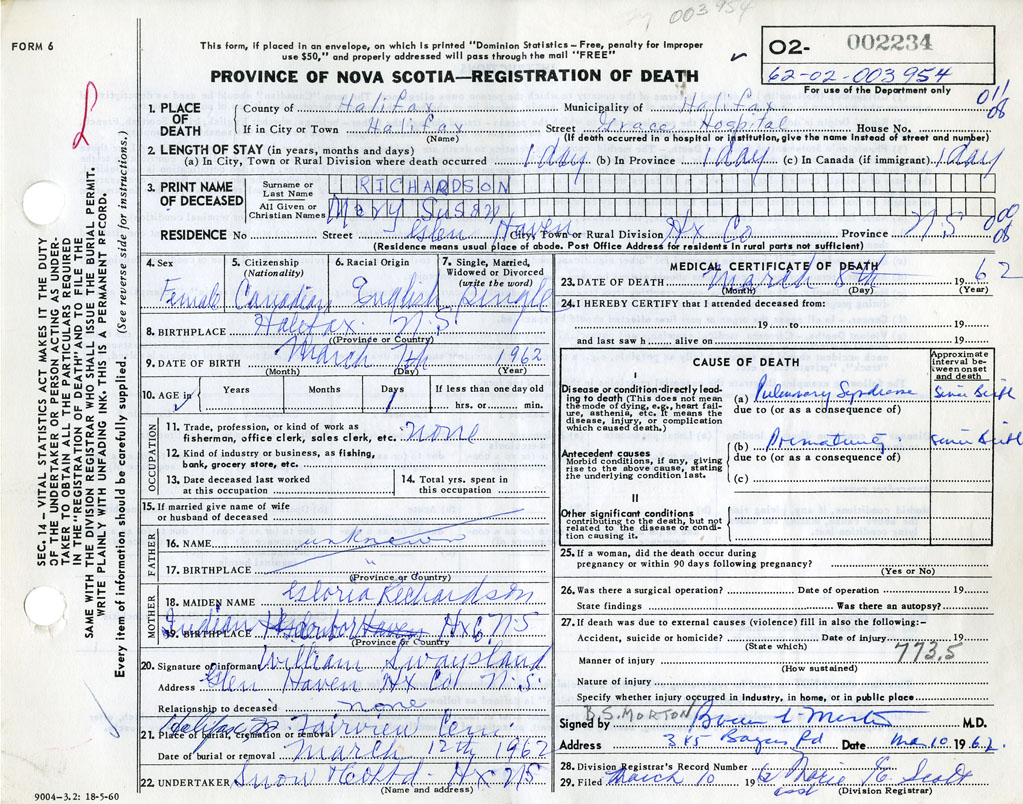 003954
FORM 6
This form, if placed in an envelope, on which is printed "Dominion Statistics – Free, penalty for improper
use $50," and properly addressed will pass through the mail "FREE"
PROVINCE OF NOVA SCOTIA—REGISTRATION OF DEATH
O2- 002234
62-02-003954
For use of the Department only
SEC. 14 – VITAL STATISTICS ACT MAKES IT THE DUTY
OF THE UNDERTAKER OR PERSON ACTING AS UNDER-
TAKER TO OBTAIN ALL THE PARTICULARS REQUIRED
IN THE "REGISTRATION OF DEATH" AND TO FILE THE
SAME WITH THE DIVISION REGISTRAR WHO SHALL ISSUE THE BURIAL PERMIT.
WRITE PLAINLY WITH UNFADING INK. THIS IS A PERMANENT RECORD.
Every item of information should be carefully supplied. (See reverse side for instructions.)
1. PLACE OF DEATH County of Halifax Municipality of Halifax
If in City or Town Halifax Street Grace Hospital House No.
(Name) (If death occurred in a hospital or institution, give the name instead of street and number)
2. LENGTH OF STAY (in years, months and days)
(a) In City, Town or Rural Division where death occurred 1 day (b) In Province 1 day (c) In Canada (if immigrant) 1 day
3. PRINT NAME OF DECEASED Surname or Last Name RICHARDSON
All Given or Christian Names Mary Susan
RESIDENCE No Street Glen Haven City, Town or Rural Division Hx Co Province N.S
(Residence means usual place of abode. Post Office Address for residents in rural parts not sufficient)
4. Sex Female
5. Citizenship (Nationality) Canadian
6. Racial Origin English
7. Single, Married, Widowed or Divorced (write the word) Single
8. BIRTHPLACE Halifax N.S
(Province or Country)
9. DATE OF BIRTH March 7th 1962
(Month) (Day) (Year)
10. AGE in Years Months Days 1 If less than one day old hrs. or min.
OCCUPATION
11. Trade, profession, or kind of work as
fisherman, office clerk, sales clerk, etc. none
12. Kind of industry or business, as fishing,
bank, grocery store, etc.
13. Date deceased last worked
at this occupation
14. Total yrs. spent in
this occupation
15. If married give name of wife
or husband of deceased
FATHER
16. NAME unknown
17. BIRTHPLACE "
(Province or Country)
MOTHER
18. MAIDEN NAME Gloria Richardson
19. BIRTHPLACE Indian Harbor Haven Hx Co N S
(Province or Country)
20. Signature of informant William Swaysland
Address Glen Haven Hx Co N.S.
Relationship to deceased none
21. Place of burial, cremation or removal Halifax Fairview Cem.
Date of burial or removal March 12th 1962
22. UNDERTAKER Snow & Co Ltd - Hx NS
(Name and address)
9004-3.2: 18-5-60
MEDICAL CERTIFICATE OF DEATH
23. DATE OF DEATH March 8th 1962
(Month) (Day) (Year)
24. I HEREBY CERTIFY that I attended deceased from:
19 to 19
and last saw h alive on 19
CAUSE OF DEATH
Approximate interval between onset and death
I
Disease or condition directly leading to death (This does not mean the mode of dying, e.g., heart failure, asthenia, etc. It means the disease, injury, or complication which caused death.)
(a) Pulmonary Syndrome Since Birth
due to (or as a consequence of)
Antecedent causes
Morbid conditions, if any, giving rise to the above cause, stating the underlying condition last.
(b) Prematurity Since Birth
due to (or as a consequence of)
(c)
II
Other significant conditions contributing to the death, but not related to the disease or condition causing it.
25. If a woman, did the death occur during
pregnancy or within 90 days following pregnancy?
(Yes or No)
26. Was there a surgical operation? Date of operation 19
State findings Was there an autopsy?
27. If death was due to external causes (violence) fill in also the following:-
Accident, suicide or homicide? Date of injury 19
(State which)
773.5
Manner of injury
(How sustained)
Nature of injury
Specify whether injury occurred in industry, in home, or in public place
B.S. MORTON
Signed by M.D.
Address 385 Rd Date Mar 10 1962
28. Division Registrar's Record Number
29. Filed March 10 1962 Marie E. Scott
(Division Registrar)